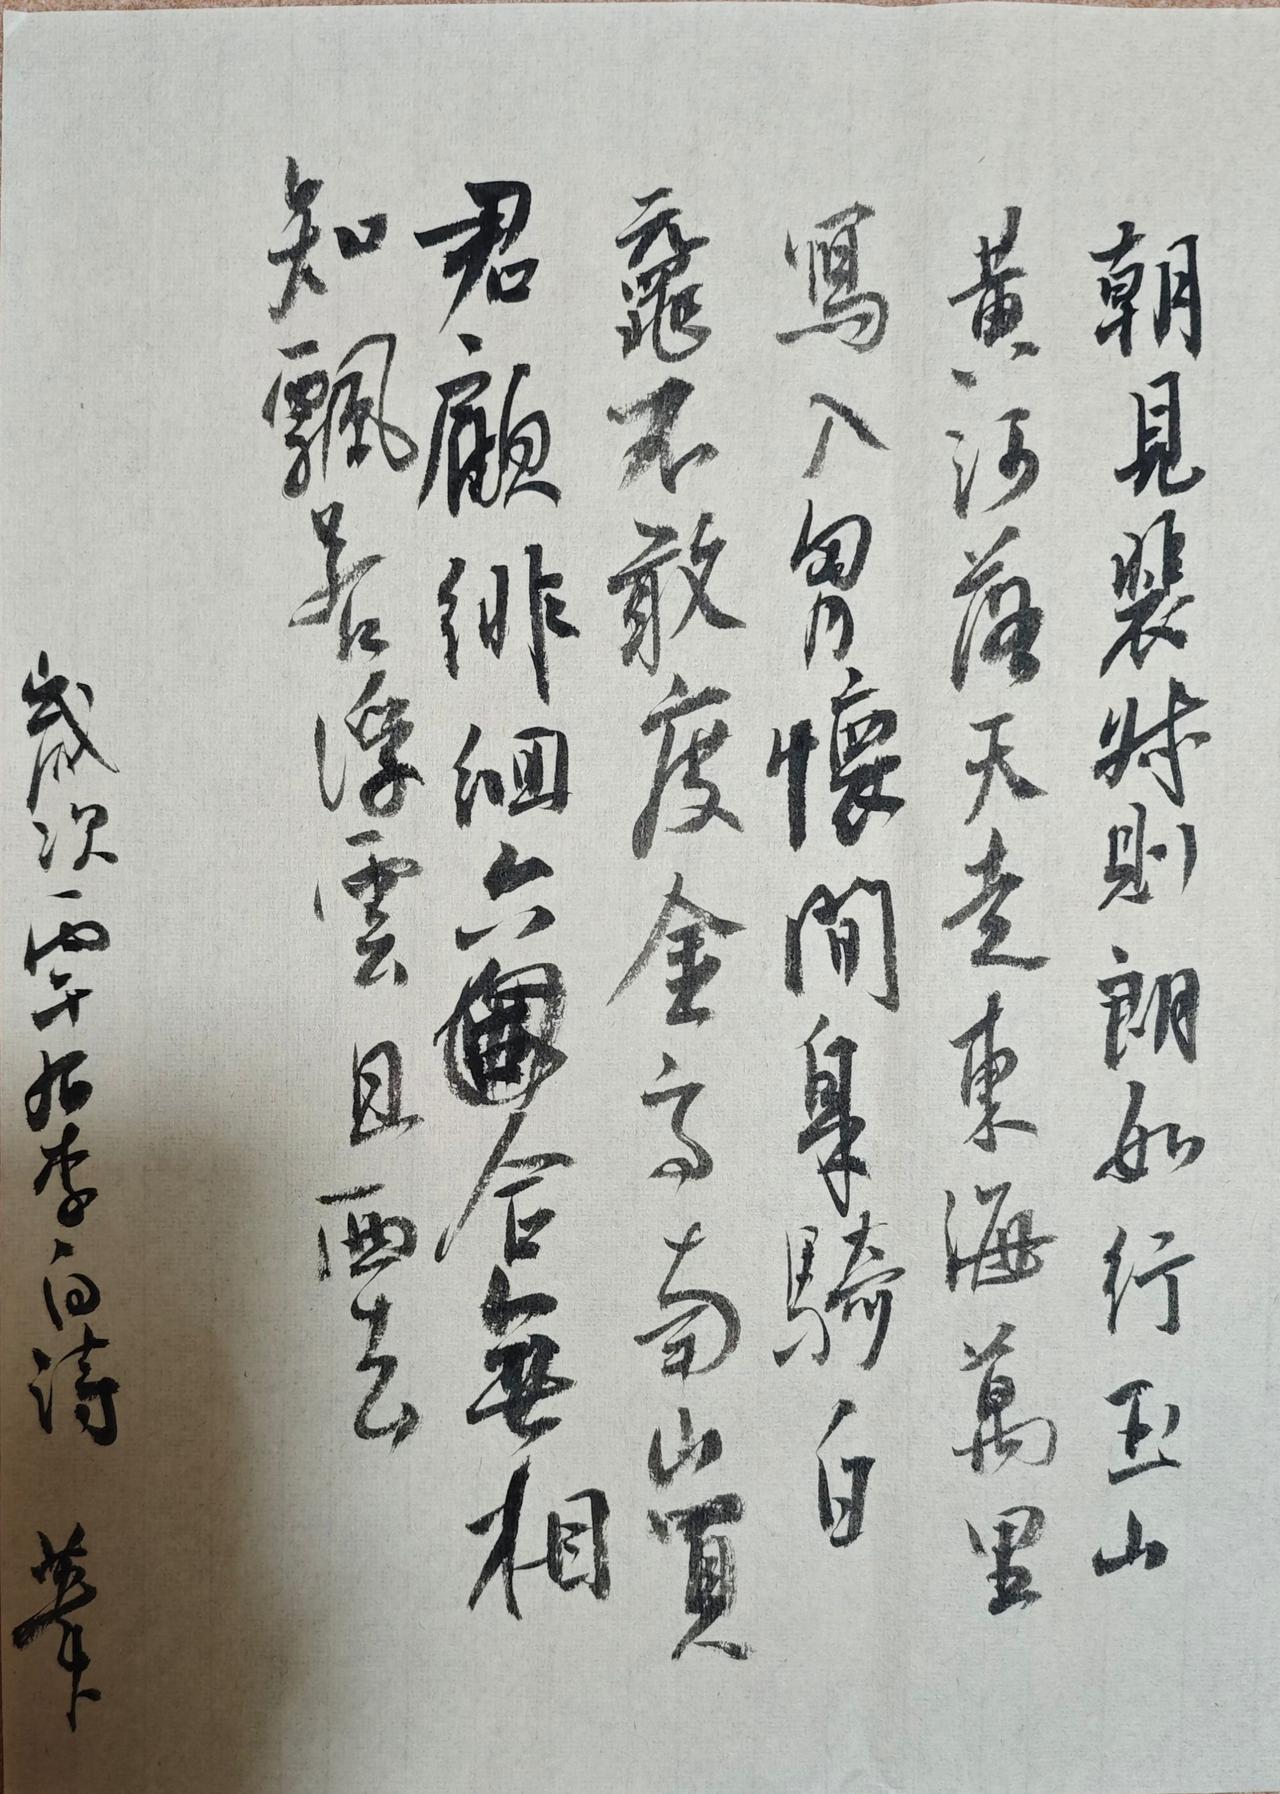 朝見裴叔則朗如行玉山
黃河落天走東海萬里
寫入胷懷間身騎白
黿不敢度金高南山買
君顧徘徊六合無相
知飄若浮雲且西去
歲次丙午李白詩